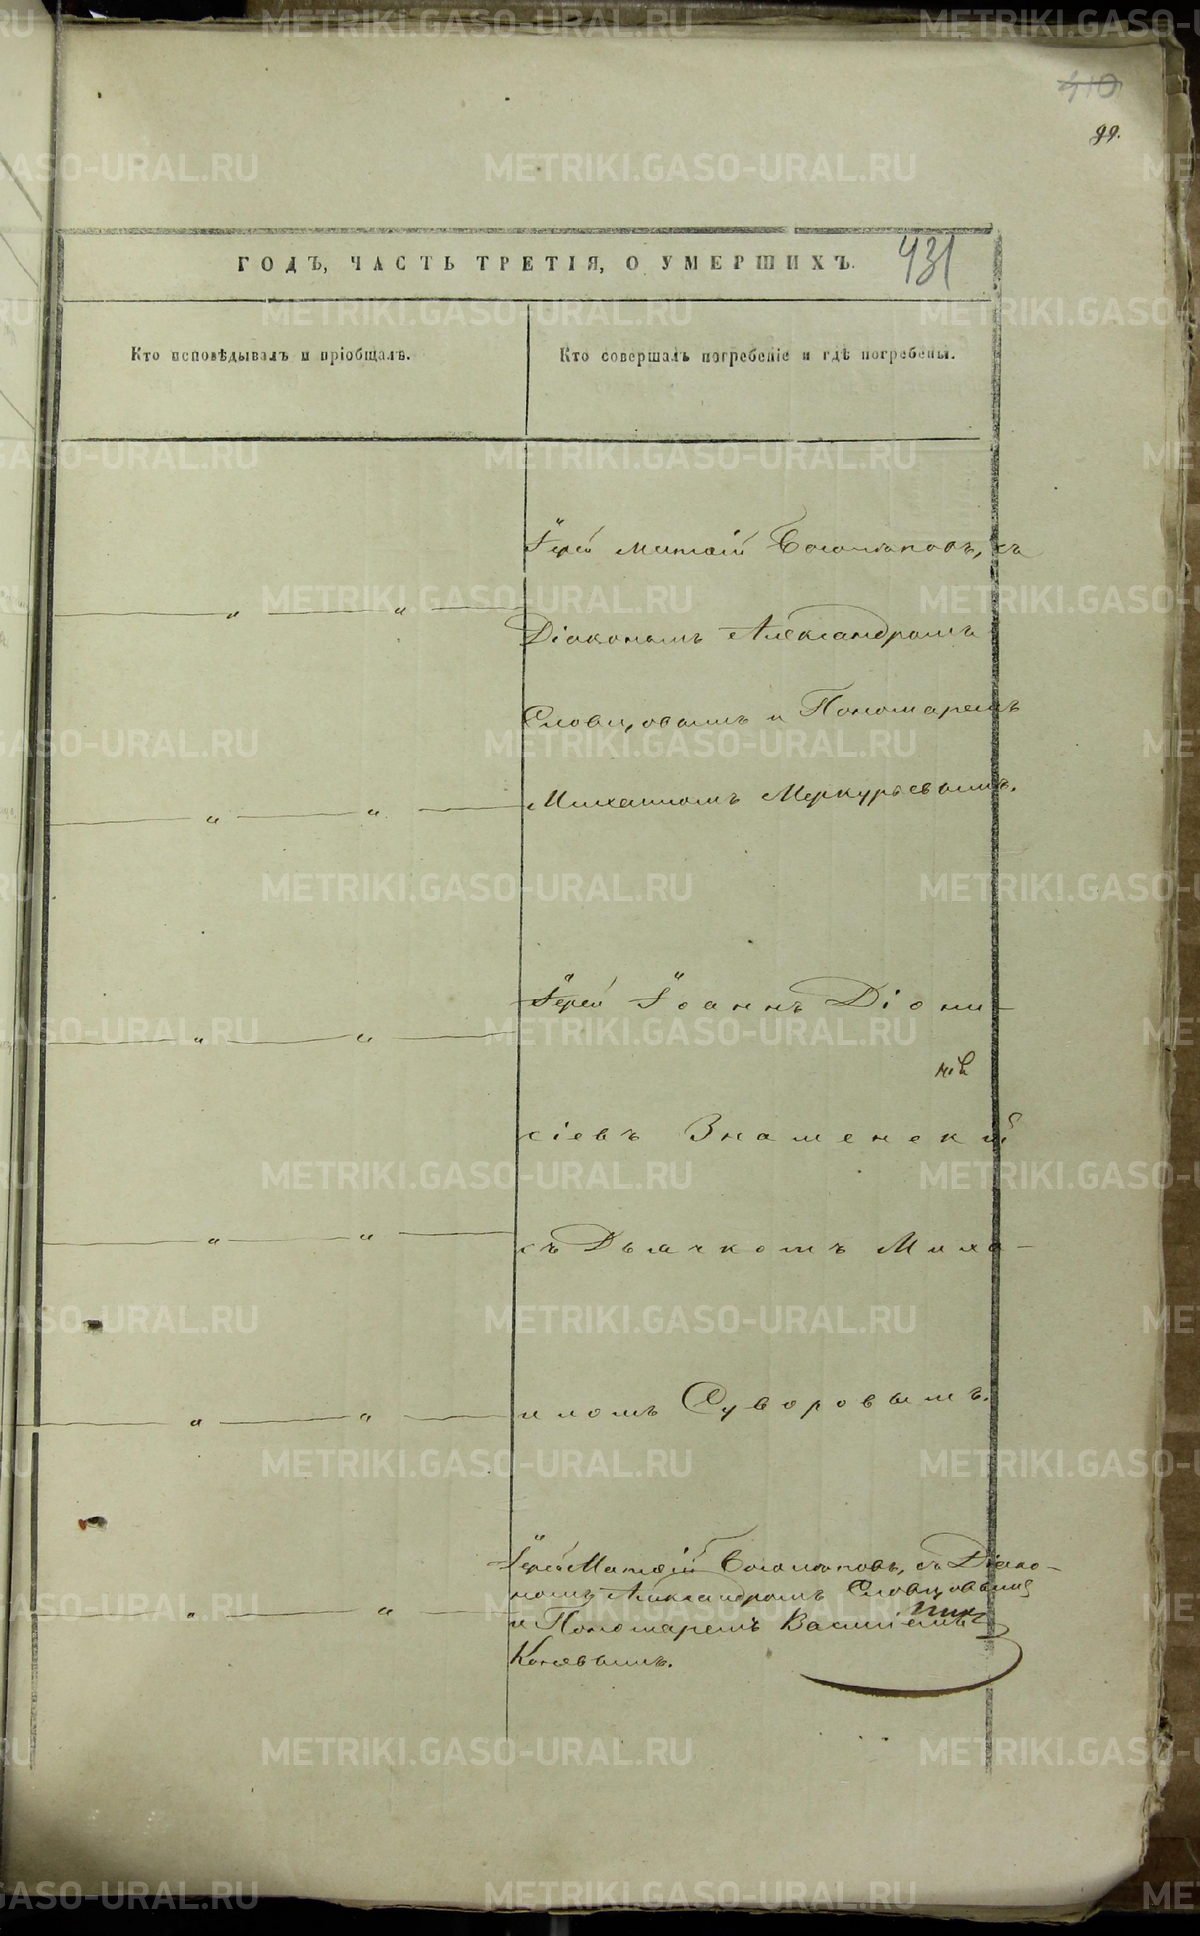 410
99.
ГОДЪ, ЧАСТЬ ТРЕТІЯ, О УМЕРШИХЪ.
431
Кто исповѣдывалъ и пріобщалъ.
Кто совершалъ погребеніе и гдѣ погребены.
Іерей Матѳій Боголюповъ, съ
Діакономъ Александромъ
Словцовымъ и Пономаремъ
Михаиломъ Меркурьевымъ.
Іерей Іоаннъ Діони-
сіевъ Знаменскій
съ Дьячкомъ Миха-
иломъ Суворовымъ.
Іерей Матѳій Боголюповъ, съ Діако-
номъ Александромъ Словцовымъ
и Пономаремъ Василіемъ
Коневымъ.
METRIKI.GASO-URAL.RU